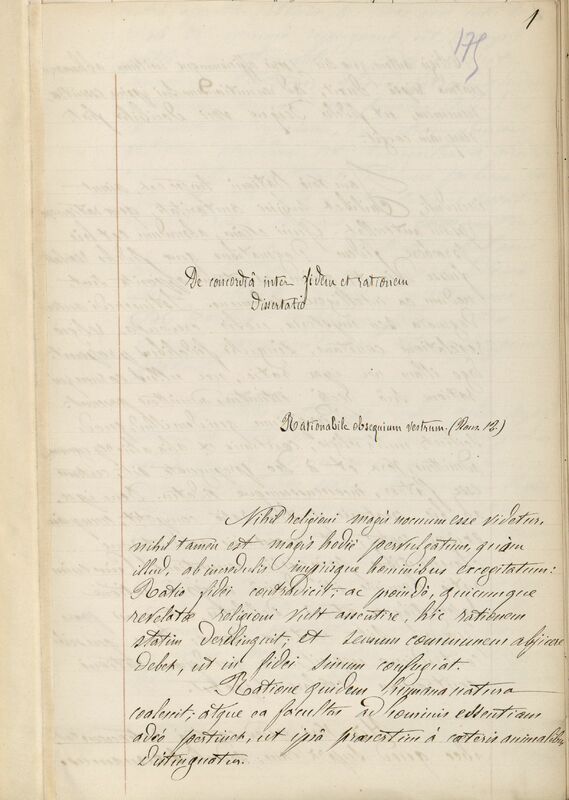 1
175
De concordiâ inter fidem et rationem
Dissertatio
Rationabile obsequium vestrum. (Rom. 12.)
Nihil religioni magis nocuum esse videtur,
nihil tamen est magis hodie pervulgatum, quàm
illud, ab incredulis impiisque hominibus excogitatum:
Ratio fidei contradicit; ac proindè, quicumque
revelatæ religioni vult assentire, hic rationem
statim derelinquit, et sensum communem abjicere
debet, ut in fidei sinum confugiat.
Ratione quidem humana natura
coalescit; atque ea facultas ad hominis essentiam
adeò pertinet, ut ipsâ præsertim à cæteris animalibus
distinguatur.